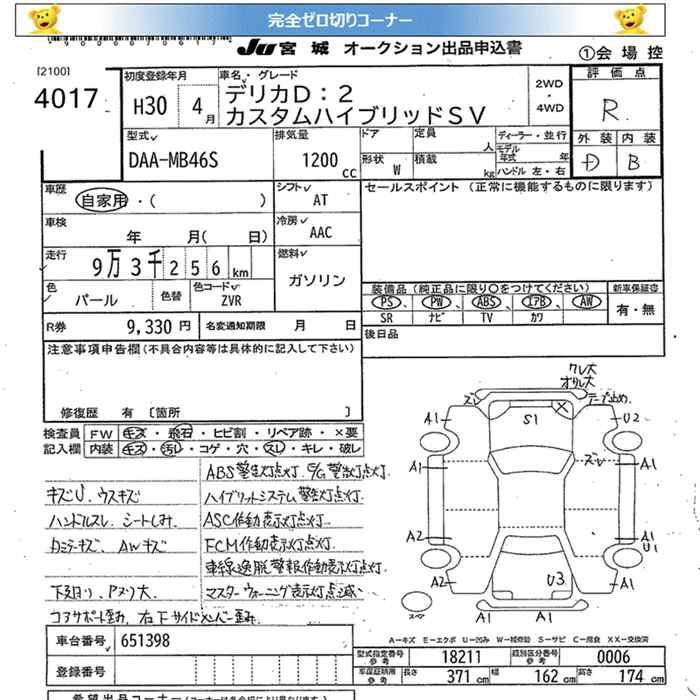 完全ゼロ切りコーナー
JU 宮城 オークション出品申込書
①会場控
[2100]
4017
初度登録年月
H30 4月
車名・グレード
デリカD:2
カスタムハイブリッドSV
2WD
・
4WD
評価点
R
外装 内装
D B
型式
DAA-MB46S
排気量
1200 cc
ドア
定員 人
形状 W
積載 kg
ディーラー・並行
モデル年式 年
ハンドル 左・右
車歴
自家用・( )
シフト
AT
セールスポイント (正常に機能するものに限ります)
車検
年 月( 日)
冷房
AAC
走行
9万3千256 km
燃料
ガソリン
色
パール
色替
色コード
ZVR
装備品 (純正品に限り○をつけてください)
新車保証書
PS PW ABS エアB AW
SR ナビ TV カワ
有・無
R券 9,330円
名変通知期限 月 日
後日品
注意事項申告欄(不具合内容等は具体的に記入して下さい)
修復歴 有 [箇所 ]
検査員記入欄
FW キズ・飛石・ヒビ割・リペア跡・×要
内装 キズ・汚レ・コゲ・穴・スレ・キレ・破レ
ABS警告灯点灯
キズU、ウスキズ
ハイブリットシステム警告灯点灯
ハンドルスレ、シートしみ
ASC作動表示灯点灯
AWキズ
FCM作動表示灯点灯
車線逸脱警報作動表示灯点灯
マスターウォーニング表示灯点滅
コアサポート歪み、右下サイドメンバー歪み
スレ
テープ止め
A1
S1
U2
A1
スレ
A1
A2
A1
U1
A2
U3
A2
A1
A1
スペア
車台番号 651398
登録番号
A-キズ E-エクボ U-凹み W-補修跡 S-サビ C-腐食 XX-交換済
型式指定番号 参考 18211
類別区分番号 参考 0006
長さ 371 cm
幅 162 cm
高さ 174 cm
希望出品コーナー